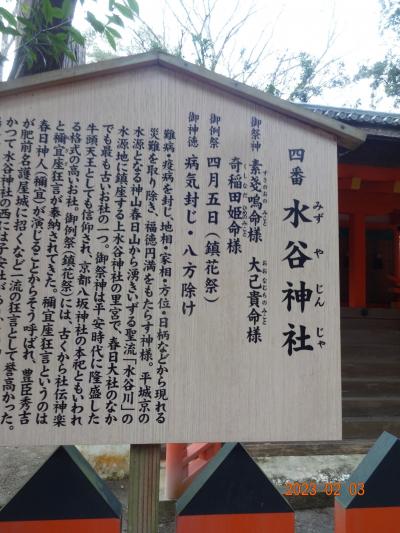 四番 水谷神社
みずやじんじゃ
御祭神 素戔嗚命様 大己貴命様
すさのおのみこと おおなむちのみこと
奇稲田姫命様
くしなだひめのみこと
御例祭 四月五日（鎮花祭）
御神徳 病気封じ・八方除け
難病・疫病を封じ、地相・家相・方位・日柄などから現れる
災難を取り除き、福徳円満をもたらす神様。平城京の
水源となる神山春日山から湧きいずる聖流「水谷川」の
水源地に鎮座する上水谷神社の里宮で、春日大社のなか
でも最も古いお社の一つ。御祭神は平安時代に隆盛した
牛頭天王としても信仰され、京都八坂神社の本祀ともいわれ
る格式の高いお社。御例祭（鎮花祭）には、古くから社伝神楽
と禰宜座狂言が奉納されてきた。禰宜座狂言というのは
春日神人（禰宜）が演じることからそう呼ばれ、豊臣秀吉
が肥前名護屋城に招くなど一流の狂言として誉高かった。
かつて水谷神社の西には
2023-02-03